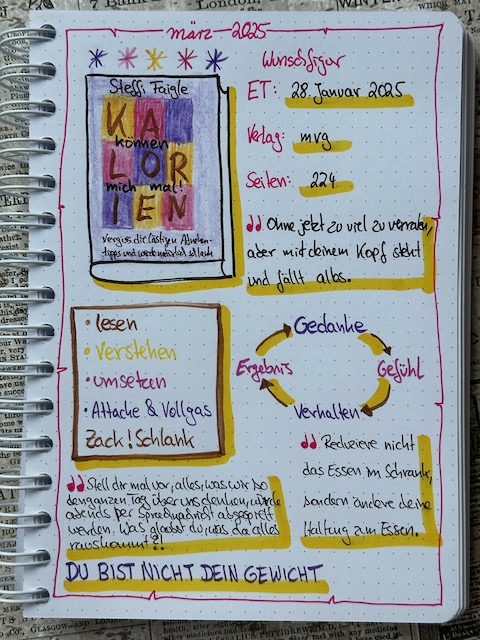 märz 2025
Wunschfigur
Steffi Faigle
KA
können
LOR
mich mal!
IEN
Vergiss die lästigen Abnehm-
tipps und werde natürlich schlank
ET: 28. Januar 2025
Verlag: mvg
Seiten: 224
Ohne jetzt zu viel zu verraten,
aber mit deinem Kopf steht
und fällt alles.
• lesen
• verstehen
• umsetzen
• Attacke & Vollgas
Zack! Schlank
Gedanke
Gefühl
Verhalten
Ergebnis
Reduziere nicht
das Essen im Schrank,
sondern ändere deine
Haltung zum Essen.
Stell dir mal vor, alles, was wir so
den ganzen Tag über uns denken, würde
abends per Sprachnachricht abgespielt
werden. Was glaubst du, was da alles
rauskommt?!
DU BIST NICHT DEIN GEWICHT